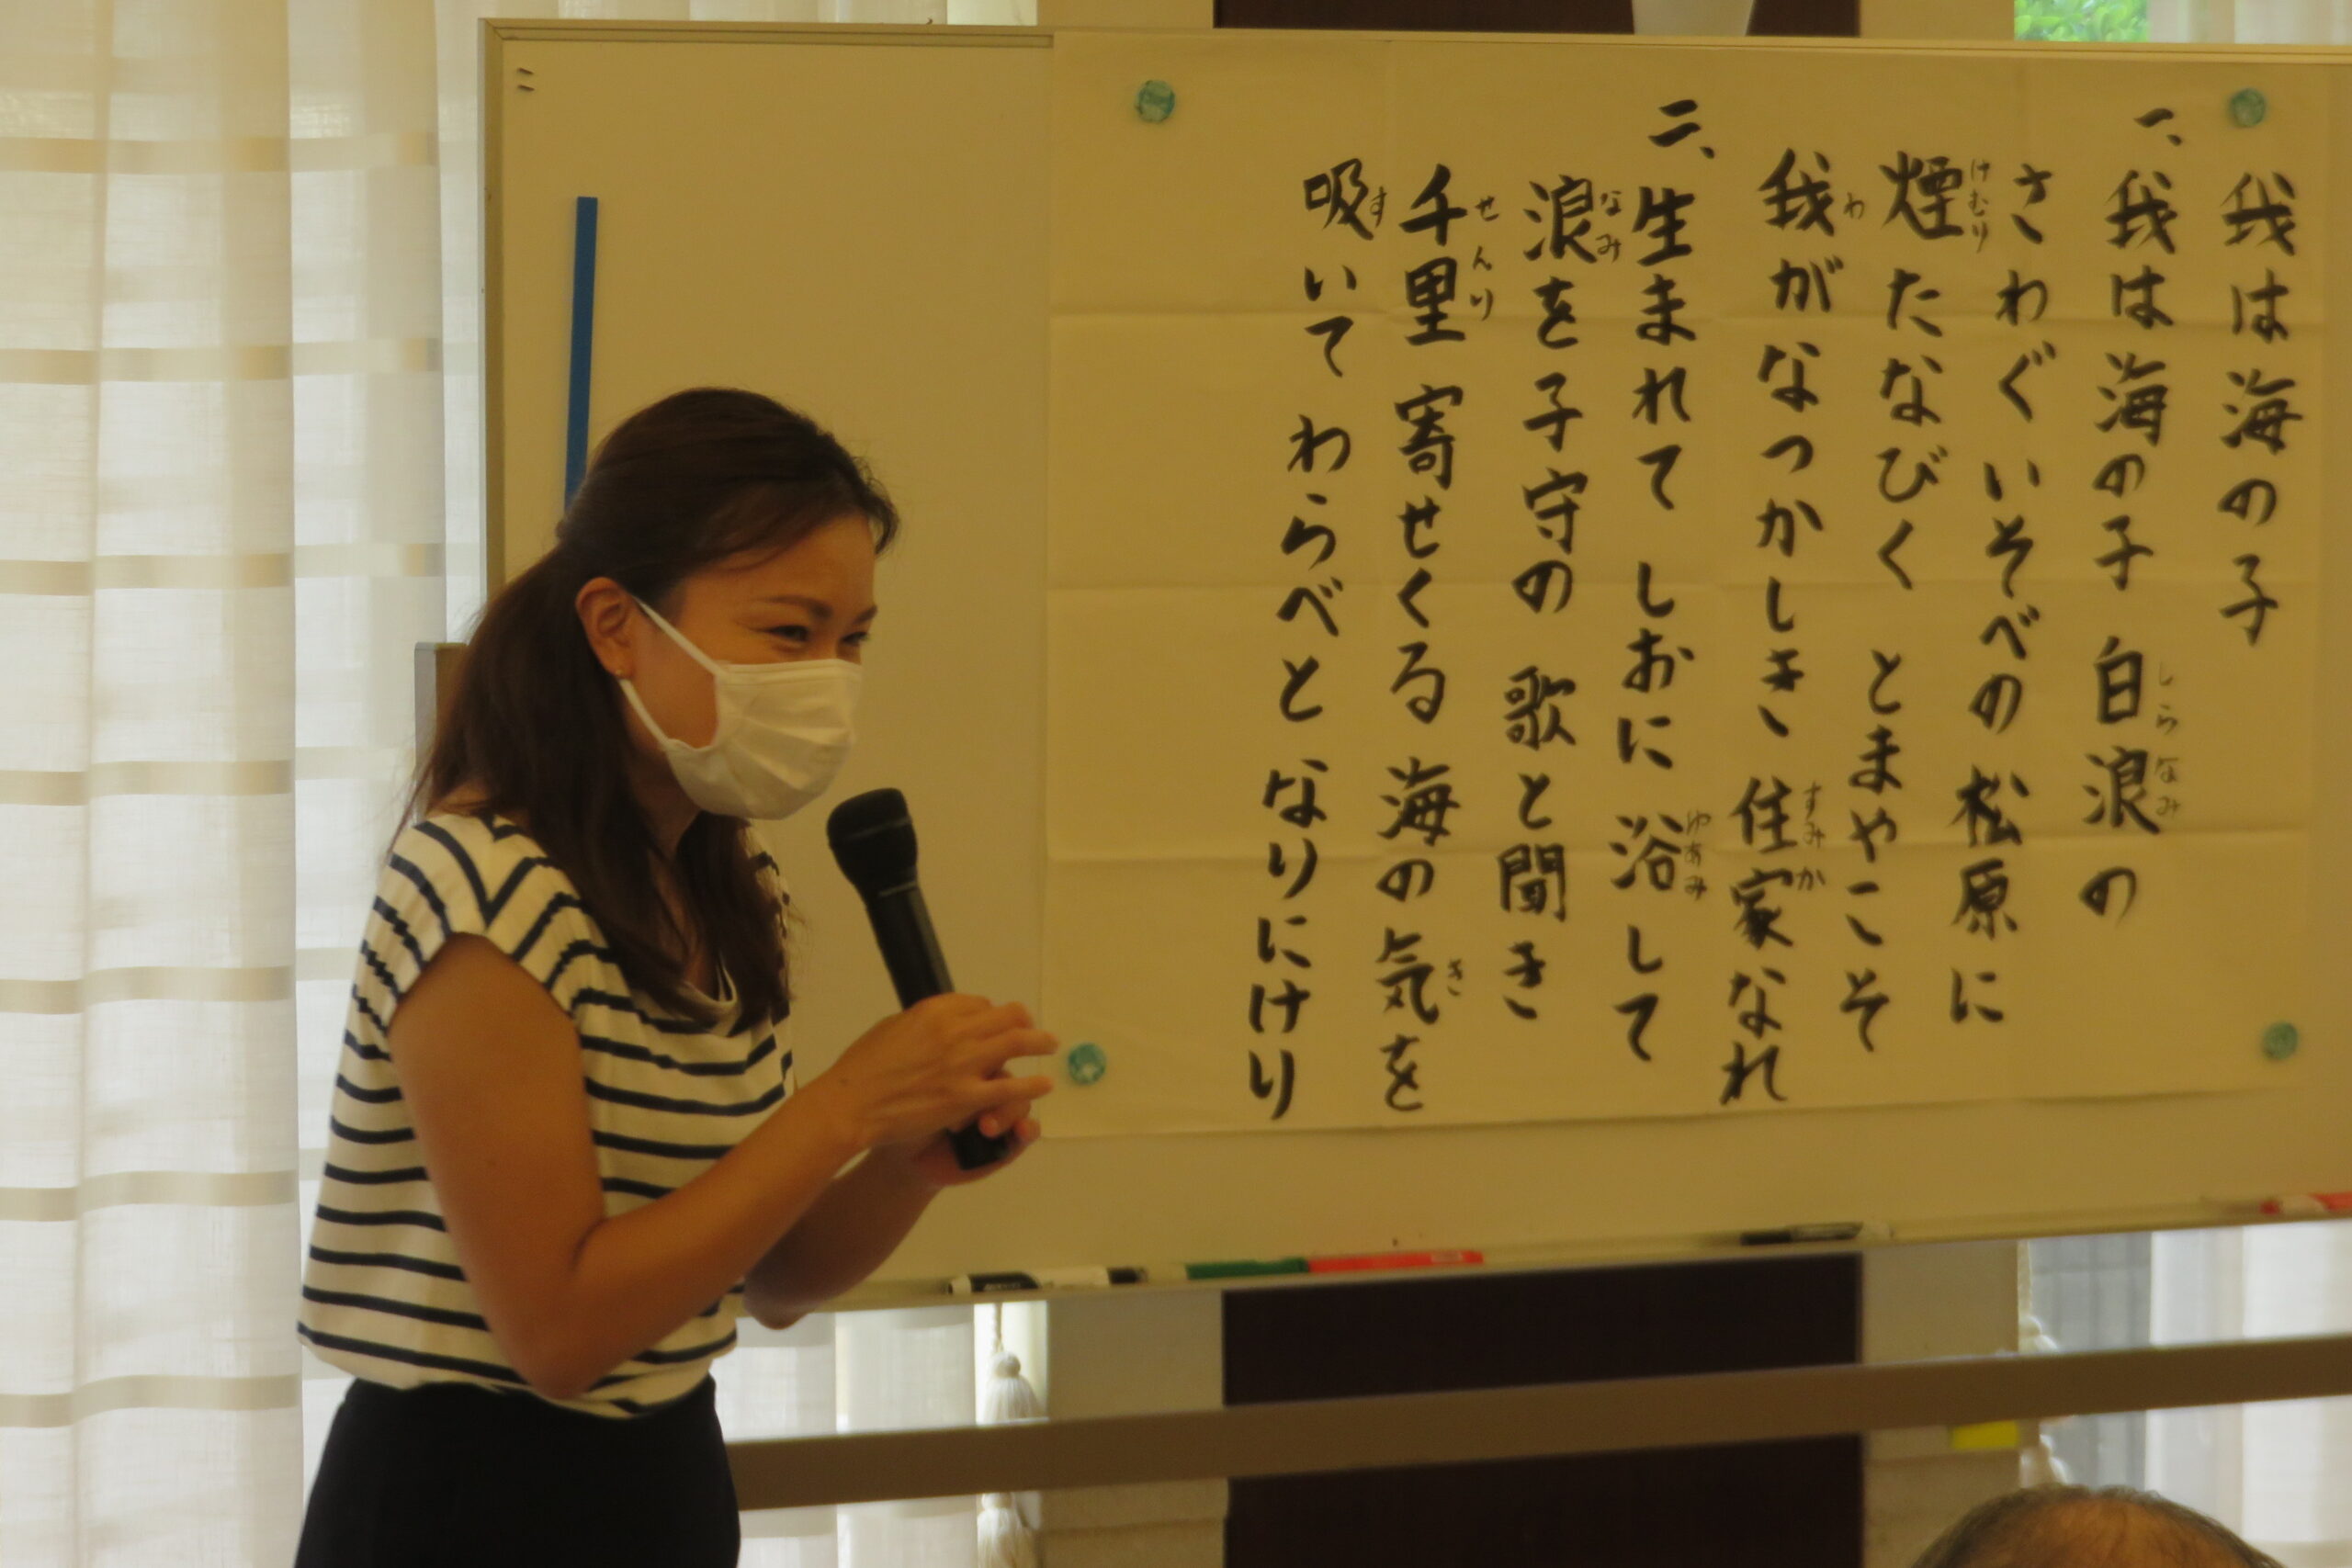 我は海の子
一、我は海の子 白浪の
しらなみ
さわぐいそべの松原に
煙たなびく とまやこそ
けむり
我がなつかしき、住家なれ
わ
すみか
二、生まれて しおに 浴して
ゆあみ
浪を子守の 歌と聞き
なみ
千里 寄せくる 海の気を
せんり
き
吸いて わらべと なりにけり
す